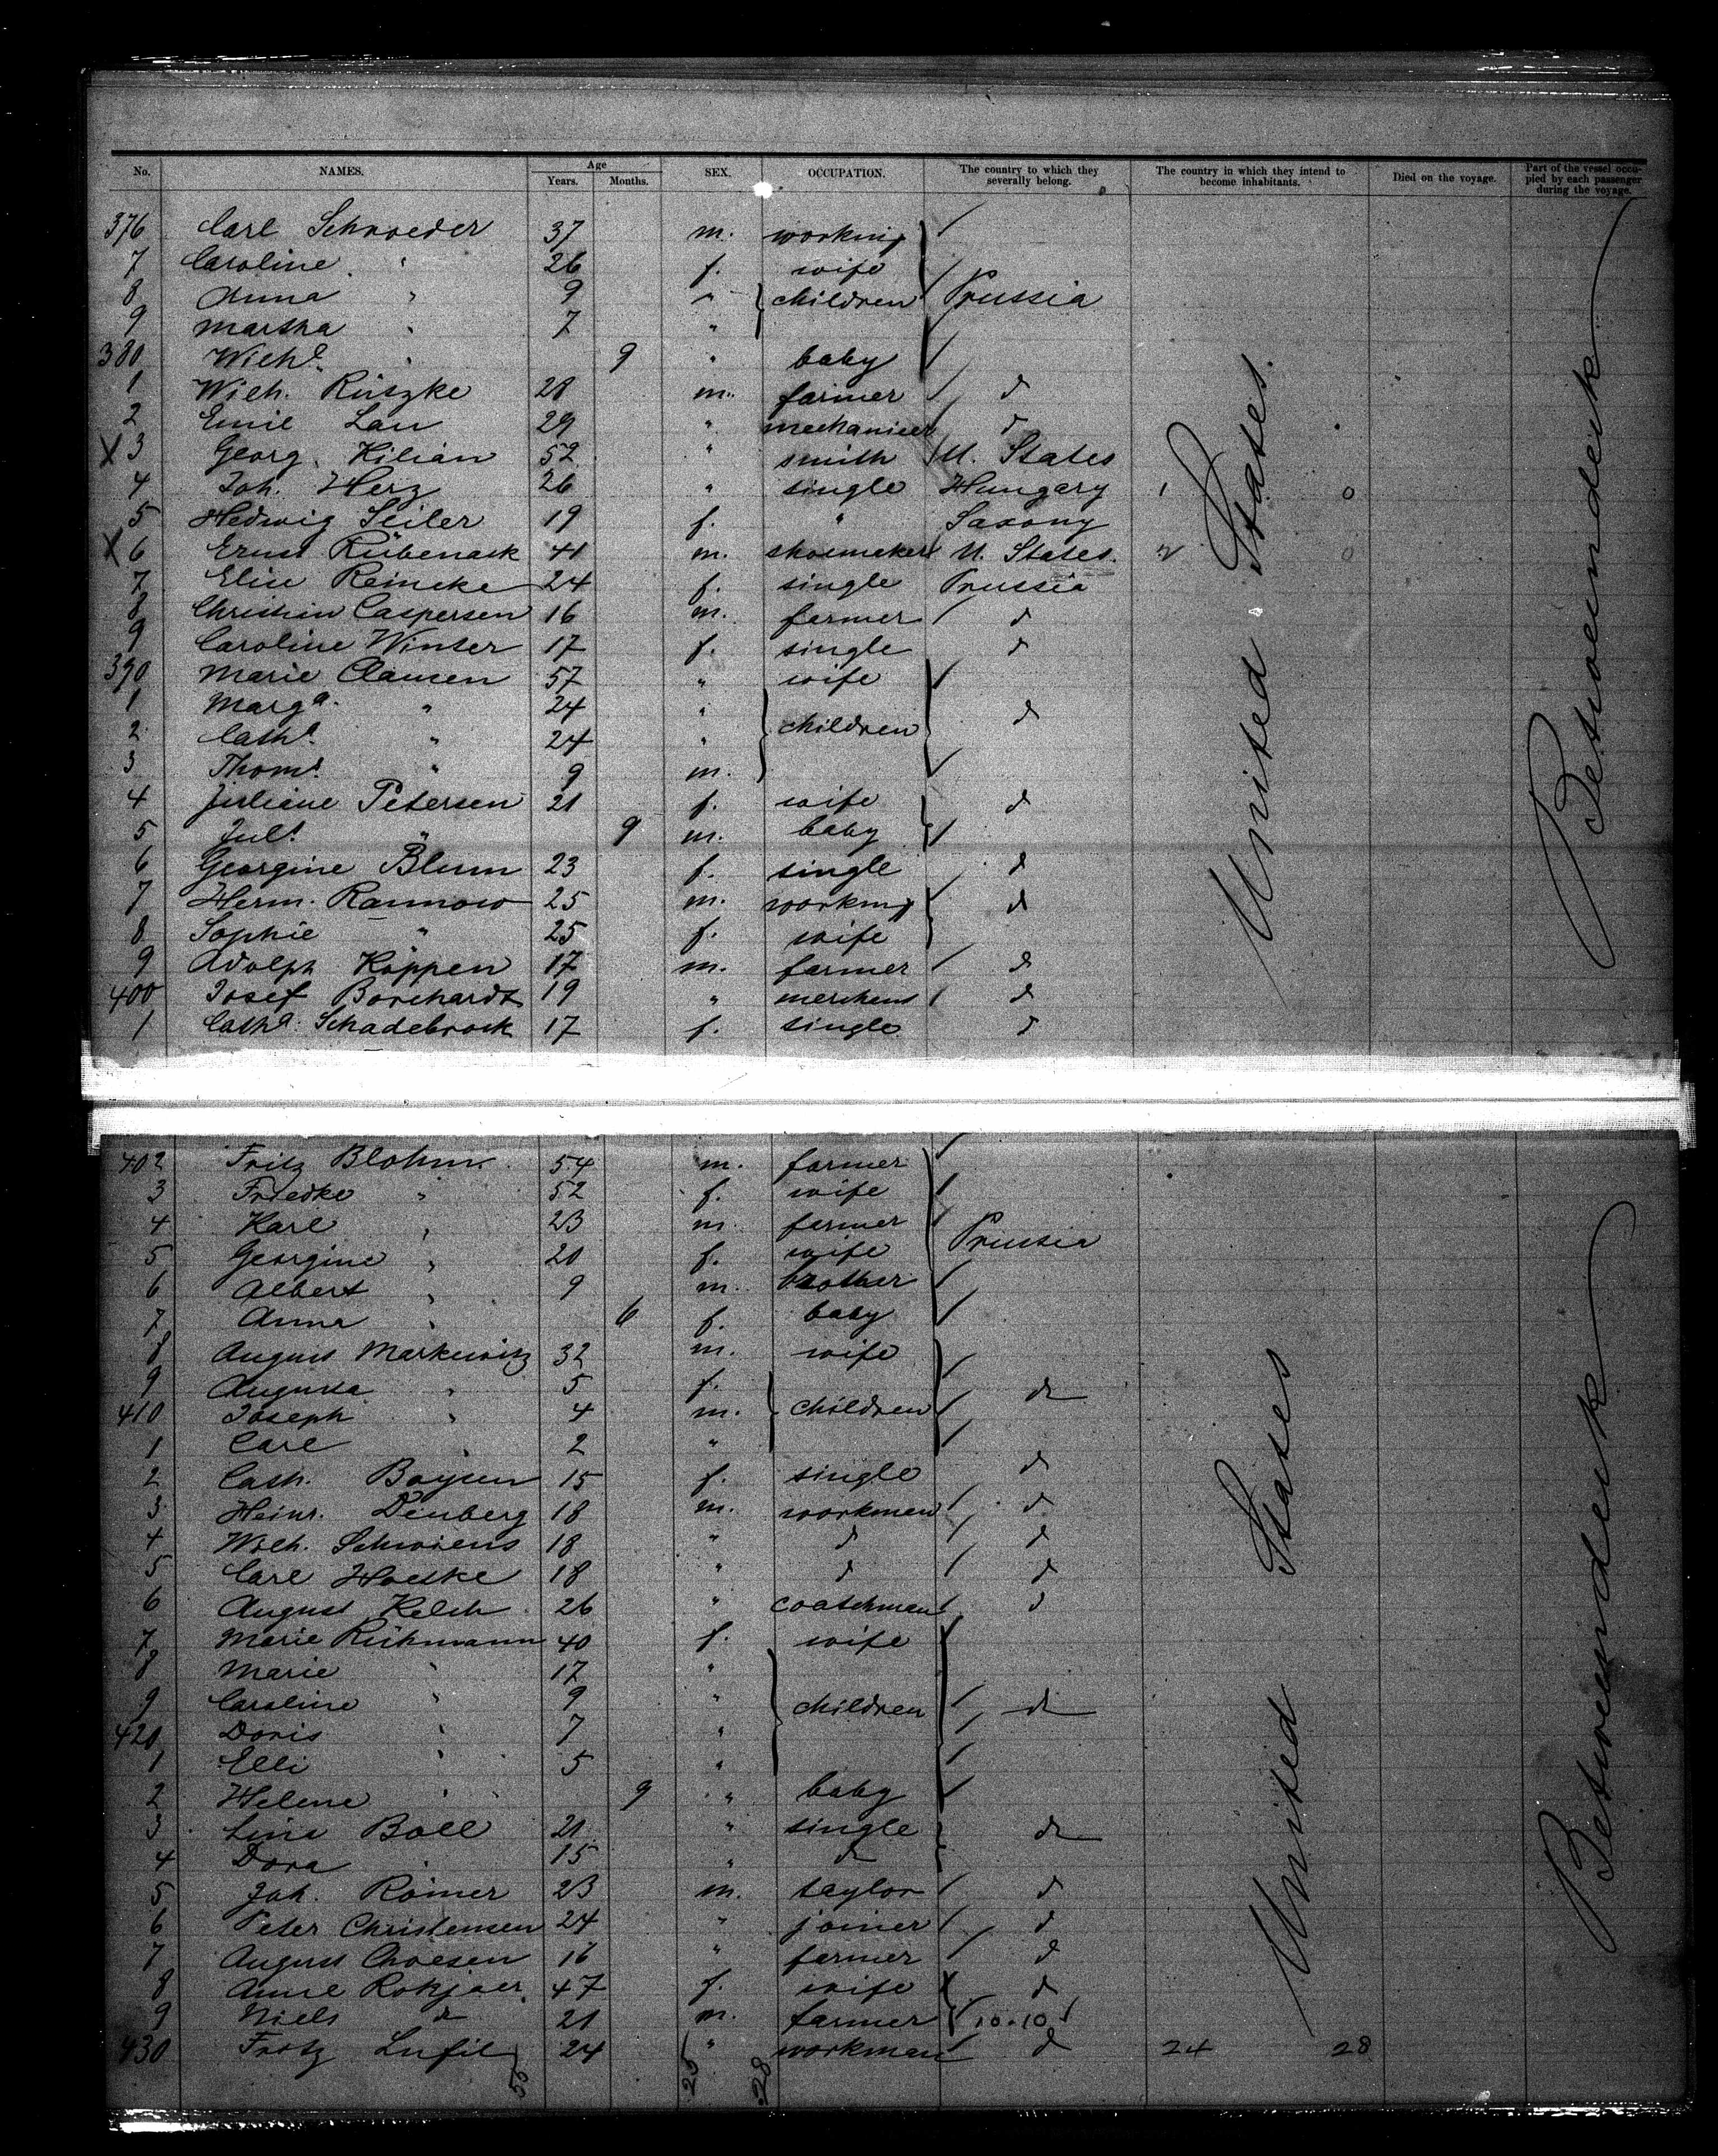 No. NAMES. Age Years. Months. SEX. OCCUPATION. The country to which they severally belong. The country in which they intend to become inhabitants. Died on the voyage. Part of the vessel occupied by each passenger during the voyage.
376 Carl Schroeder 37 m. working
7 Caroline " 26 f. wife
8 Anna " 9 " children Prussia
9 Martha " 7 "
380 Wilh. " 9 " baby
1 Wilh. Rützke 28 m. farmer d
2 Emil Lau 29 " mechaniker d
X 3 Georg Kilian 52 " smith U. States
4 Joh. Herz 26 " single Hungary 1 0
5 Hedwig Seiler 19 f. " Saxony
X 6 Ernst Rübenack 41 m. shoemaker U. States. 2 0
7 Elise Reincke 24 f. single Prussia
8 Christian Caspersen 16 m. farmer d
9 Caroline Winter 17 f. single d
390 Marie Clausen 57 " wife
1 Marga. " 24 " children d
2 Cath. " 24 "
3 Thoms. " 9 m.
4 Juliane Petersen 21 f. wife d
5 Juls. " 9 m. baby
6 Georgine Blum 23 f. single d
7 Herm. Rannow 25 m. working d
8 Sophie " 25 f. wife
9 Adolph Köppen 17 m. farmer d
400 Josef Borchardt 19 " merchent d
1 Catha. Schadebrock 17 f. single d
United States.
Betweendeck
402 Fritz Blohm 54 m. farmer
3 Friedke " 52 f. wife
4 Karl " 23 m. farmer Prussia
5 Georgine " 20 f. wife
6 Albert " 9 m. brother
7 Anna " 6 f. baby
8 August Markewitz 32 m. wife
9 Augusta " 5 f. children d
410 Joseph " 4 m.
1 Carl " 2 "
2 Cath. Boysen 15 f. single d
3 Heinr. Denberg 18 m. workmen d
4 Wilh. Schwiens 18 " d d
5 Carl Hoeske 18 " d d
6 August Kelch 26 " coatchman d
7 Marie Rühmann 40 f. wife
8 Marie " 17 "
9 Caroline " 9 " children d
420 Doris " 7 "
1 Elli " 5 "
2 Helene " 9 " baby
3 Lina Boll 21 " single d
4 Dora " 15 " d
5 Joh. Römer 23 m. taylor d
6 Peter Christensen 24 " joiner d
7 August Choesen 16 " farmer d
8 Anne Rokjaer 47 f. wife d
9 Niels d 21 m. farmer 10.10
430 Fritz 24 " workman d 24 28
55 25 28
United States
Betweendeck